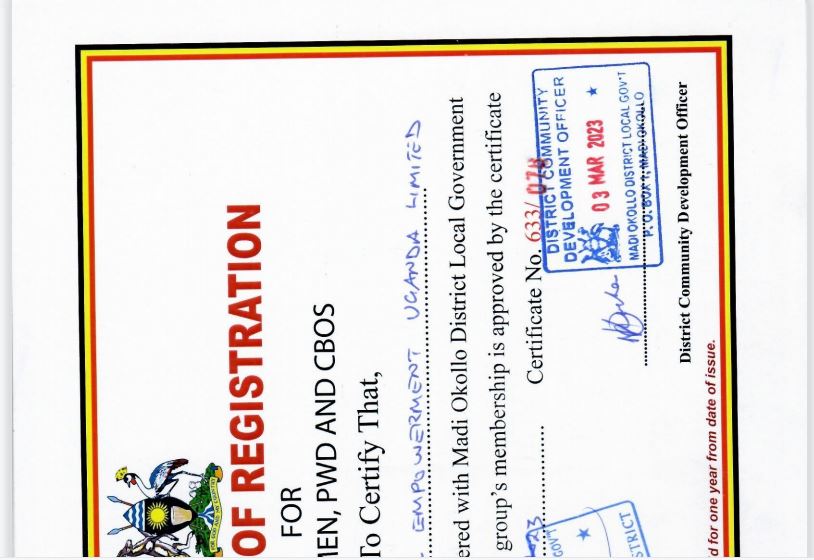 OF REGISTRATION
FOR
MEN, PWD AND CBOS
To Certify That,
EMPOWERMENT UGANDA LIMITED
ered with Madi Okollo District Local Government
group's membership is approved by the certificate
Certificate No. 633/078
DISTRICT COMMUNITY
DEVELOPMENT OFFICER
03 MAR 2023
MADI OKOLLO DISTRICT LOCAL GOV'T
P.O. BOX 1, MADI-OKOLLO
District Community Development Officer
GOV'T
STRICT
for one year from date of issue.